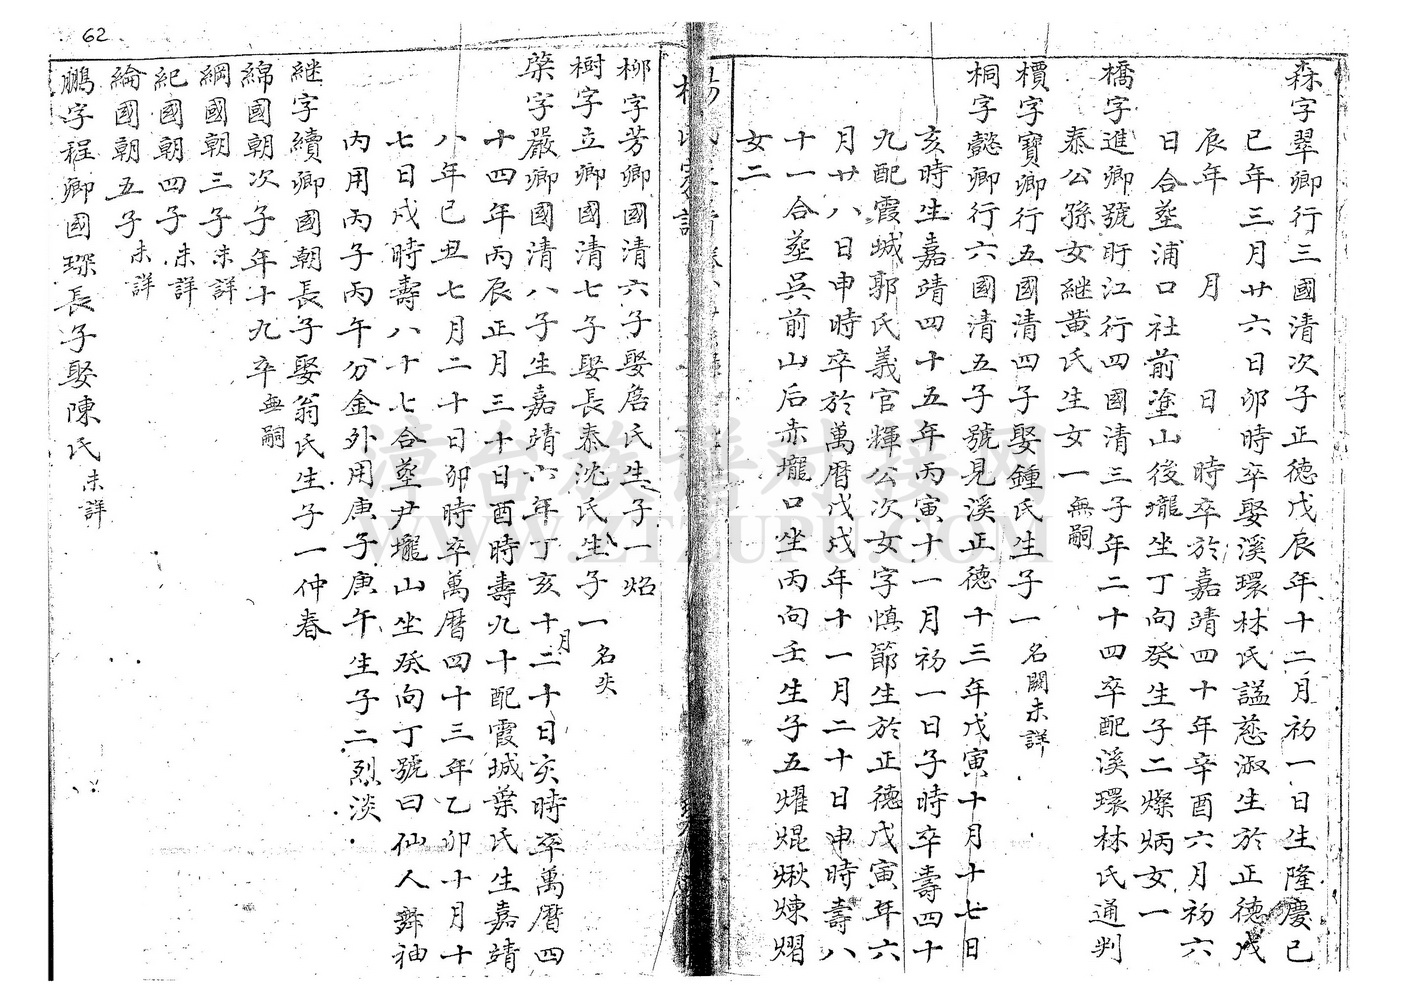 森字翠卿行三國清次子正德戊辰年十二月初一日生隆慶己
巳年三月廿六日卯時卒娶溪環林氏謚慈淑生於正德戊
辰年 月 日 時卒於嘉靖四十年辛酉六月初六
日合塟浦口社前塗山後壠坐丁向癸生子二燦炳女一
橋字進卿號盱江行四國清三子年二十四卒配溪環林氏通判
泰公孫女继黄氏生女一無嗣
櫝字寶卿行五國清四子娶鍾氏生子一名闕未詳
桐字懿卿行六國清五子號見溪正德十三年戊寅十月十七日
亥時生嘉靖四十五年丙寅十一月初一日子時卒壽四十
九配霞城郭氏義官輝公次女字慎節生於正德戊寅年六
月廿八日申時卒於萬曆戊戌年十一月二十日申時壽八
十一合塟吳前山后赤壠口坐丙向壬生子五燿焜煍煉熠
女二
柳字芳卿國清六子娶詹氏生子一炤
樹字立卿國清七子娶長泰沈氏生子一名失
榮字嚴卿國清八子生嘉靖六年丁亥十二月十日亥時卒萬曆四
十四年丙辰正月三十日酉時壽九十配霞城葉氏生嘉靖
八年己丑七月二十日卯時卒萬曆四十三年乙卯十月十
七日戌時壽八十七合塟尹壠山坐癸向丁號曰仙人舞袖
内用丙子丙午分金外用庚子庚午生子二烈淡
継字續卿國朝長子娶翁氏生子一仲春
綿國朝次子年十九卒無嗣
綱國朝三子未詳
紀國朝四子未詳
綸國朝五子未詳
鵬字程卿國琛長子娶陳氏未詳
62
漳台族谱对接网
WWW.ZTZUPU.COM